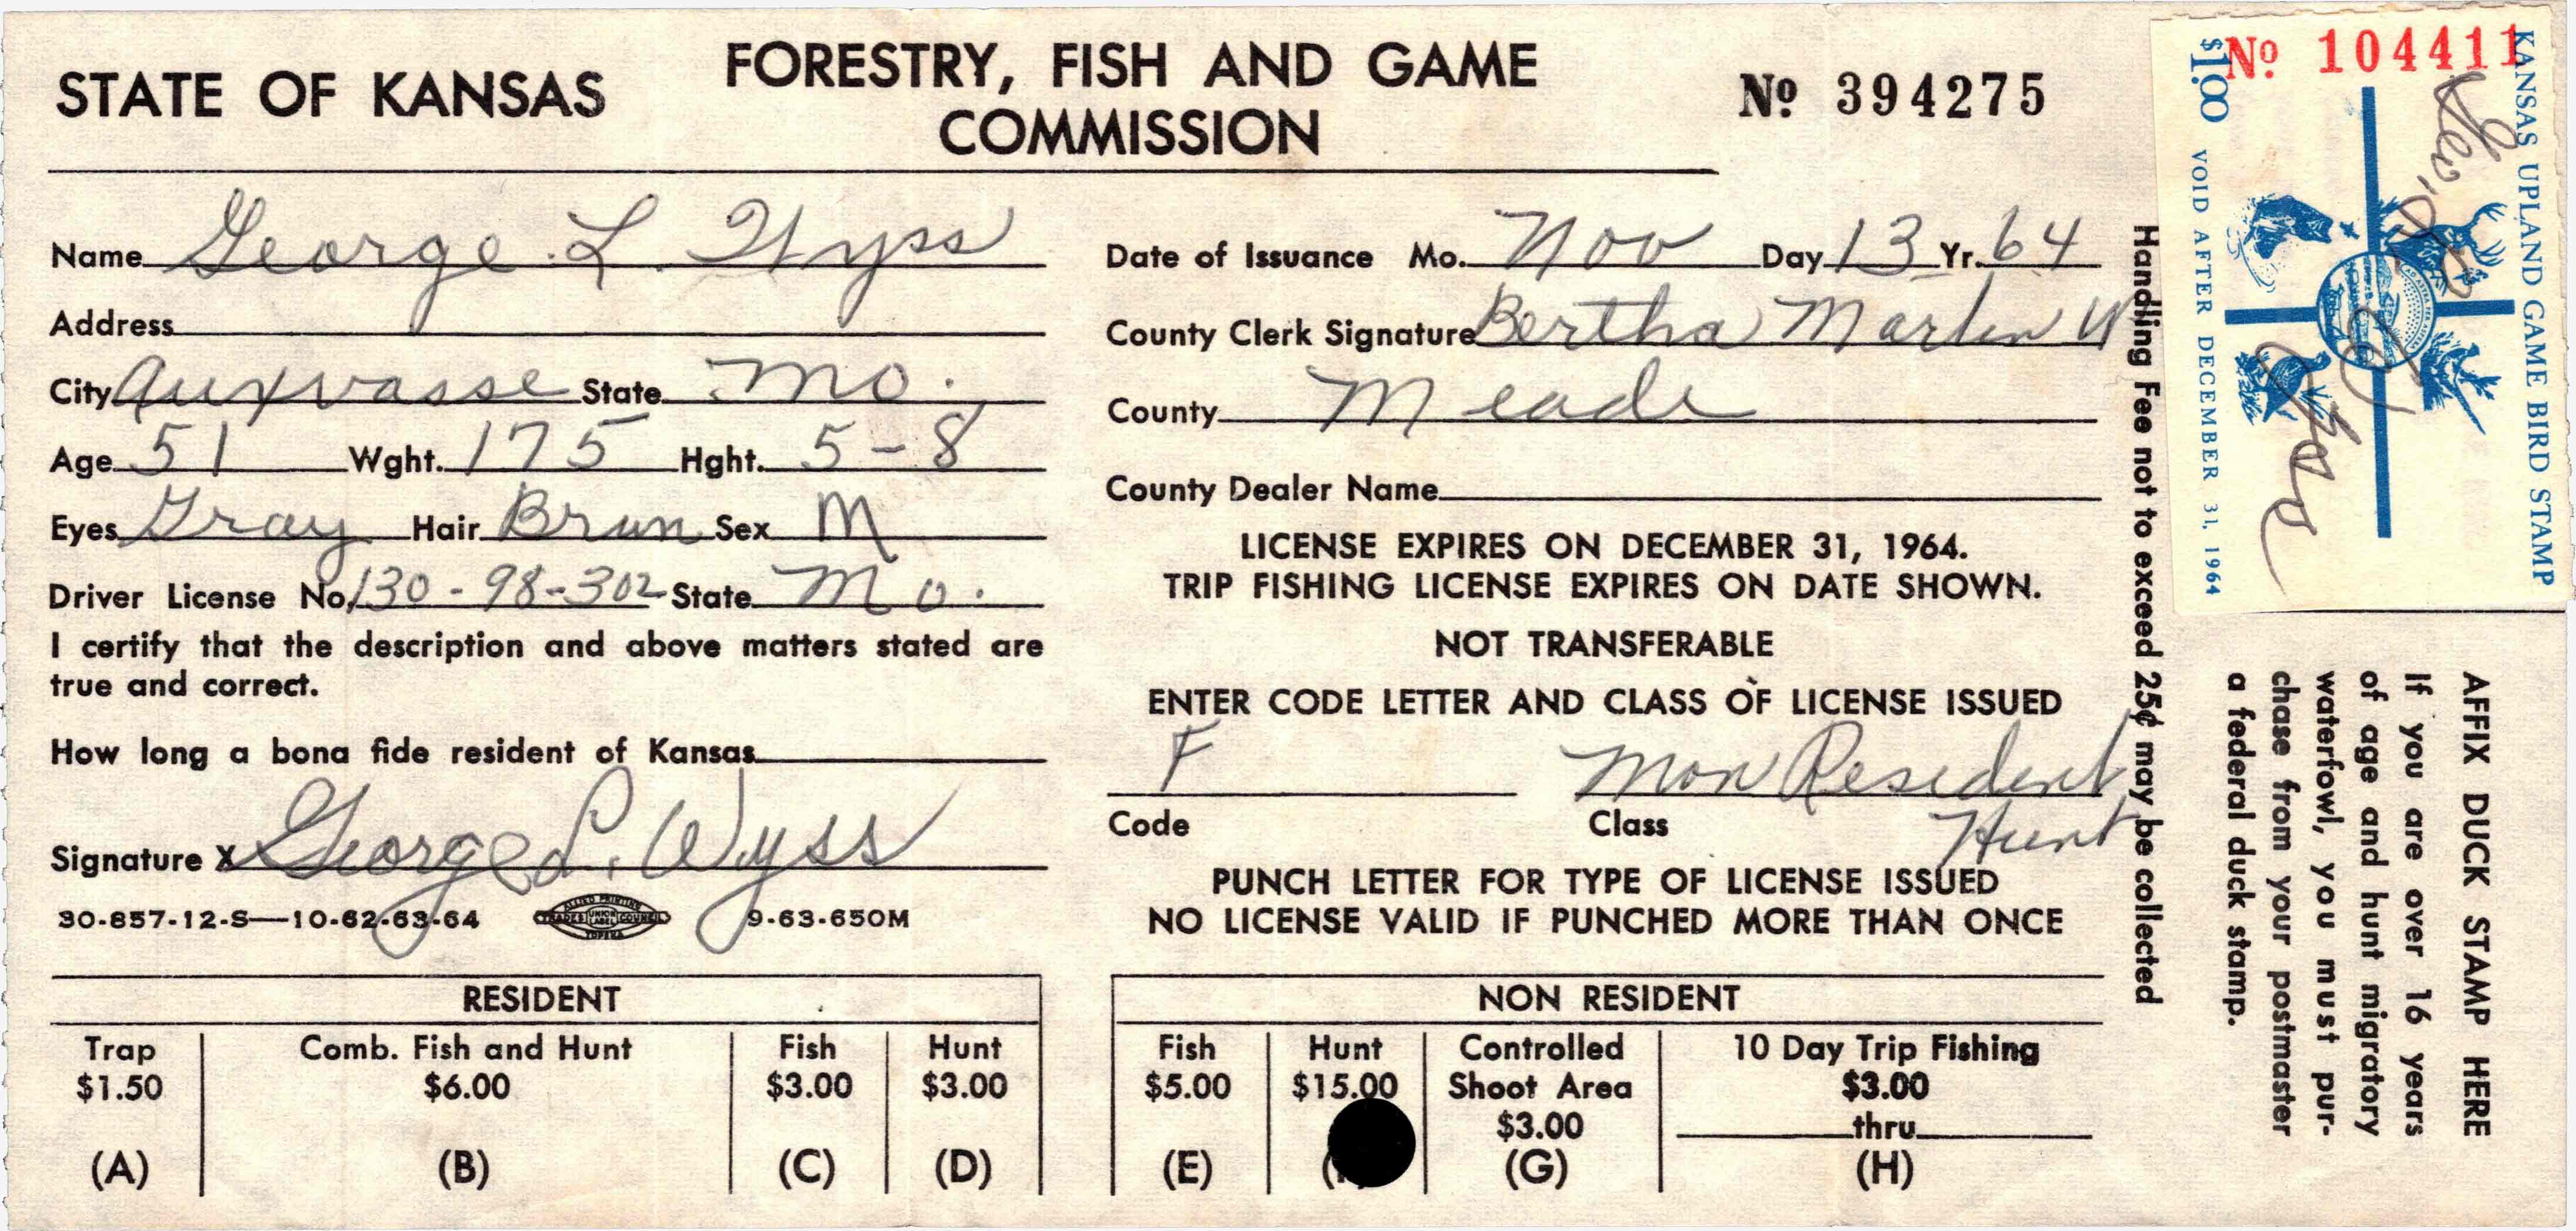 STATE OF KANSAS
FORESTRY, FISH AND GAME
COMMISSION
Nº 394275
Name George L. Wyss
Address
City Auxvasse State Mo.
Age 51 Wght. 175 Hght. 5-8
Eyes Gray Hair Brun Sex M
Driver License No. 130-98-302 State Mo.
I certify that the description and above matters stated are
true and correct.
How long a bona fide resident of Kansas
Signature X George L. Wyss
30-857-12-S—10-62-63-64
ALLIED PRINTING
TRADES UNION LABEL COUNCIL
TOPEKA
9-63-650M
Date of Issuance Mo. Nov Day 13 Yr. 64
County Clerk Signature Bertha Martin W
County Meade
County Dealer Name
LICENSE EXPIRES ON DECEMBER 31, 1964.
TRIP FISHING LICENSE EXPIRES ON DATE SHOWN.
NOT TRANSFERABLE
ENTER CODE LETTER AND CLASS OF LICENSE ISSUED
F Non Resident
Code Class Hunt
PUNCH LETTER FOR TYPE OF LICENSE ISSUED
NO LICENSE VALID IF PUNCHED MORE THAN ONCE
RESIDENT
Trap Comb. Fish and Hunt Fish Hunt
$1.50 $6.00 $3.00 $3.00
(A) (B) (C) (D)
NON RESIDENT
Fish Hunt Controlled 10 Day Trip Fishing
$5.00 $15.00 Shoot Area $3.00
$3.00 thru
(E) (G) (H)
Handling Fee not to exceed 25¢ may be collected
Nº 104411
KANSAS UPLAND GAME BIRD STAMP
George L Wyss
$1.00 VOID AFTER DECEMBER 31, 1964
AFFIX DUCK STAMP HERE
If you are over 16 years
of age and hunt migratory
waterfowl, you must pur-
chase from your postmaster
a federal duck stamp.